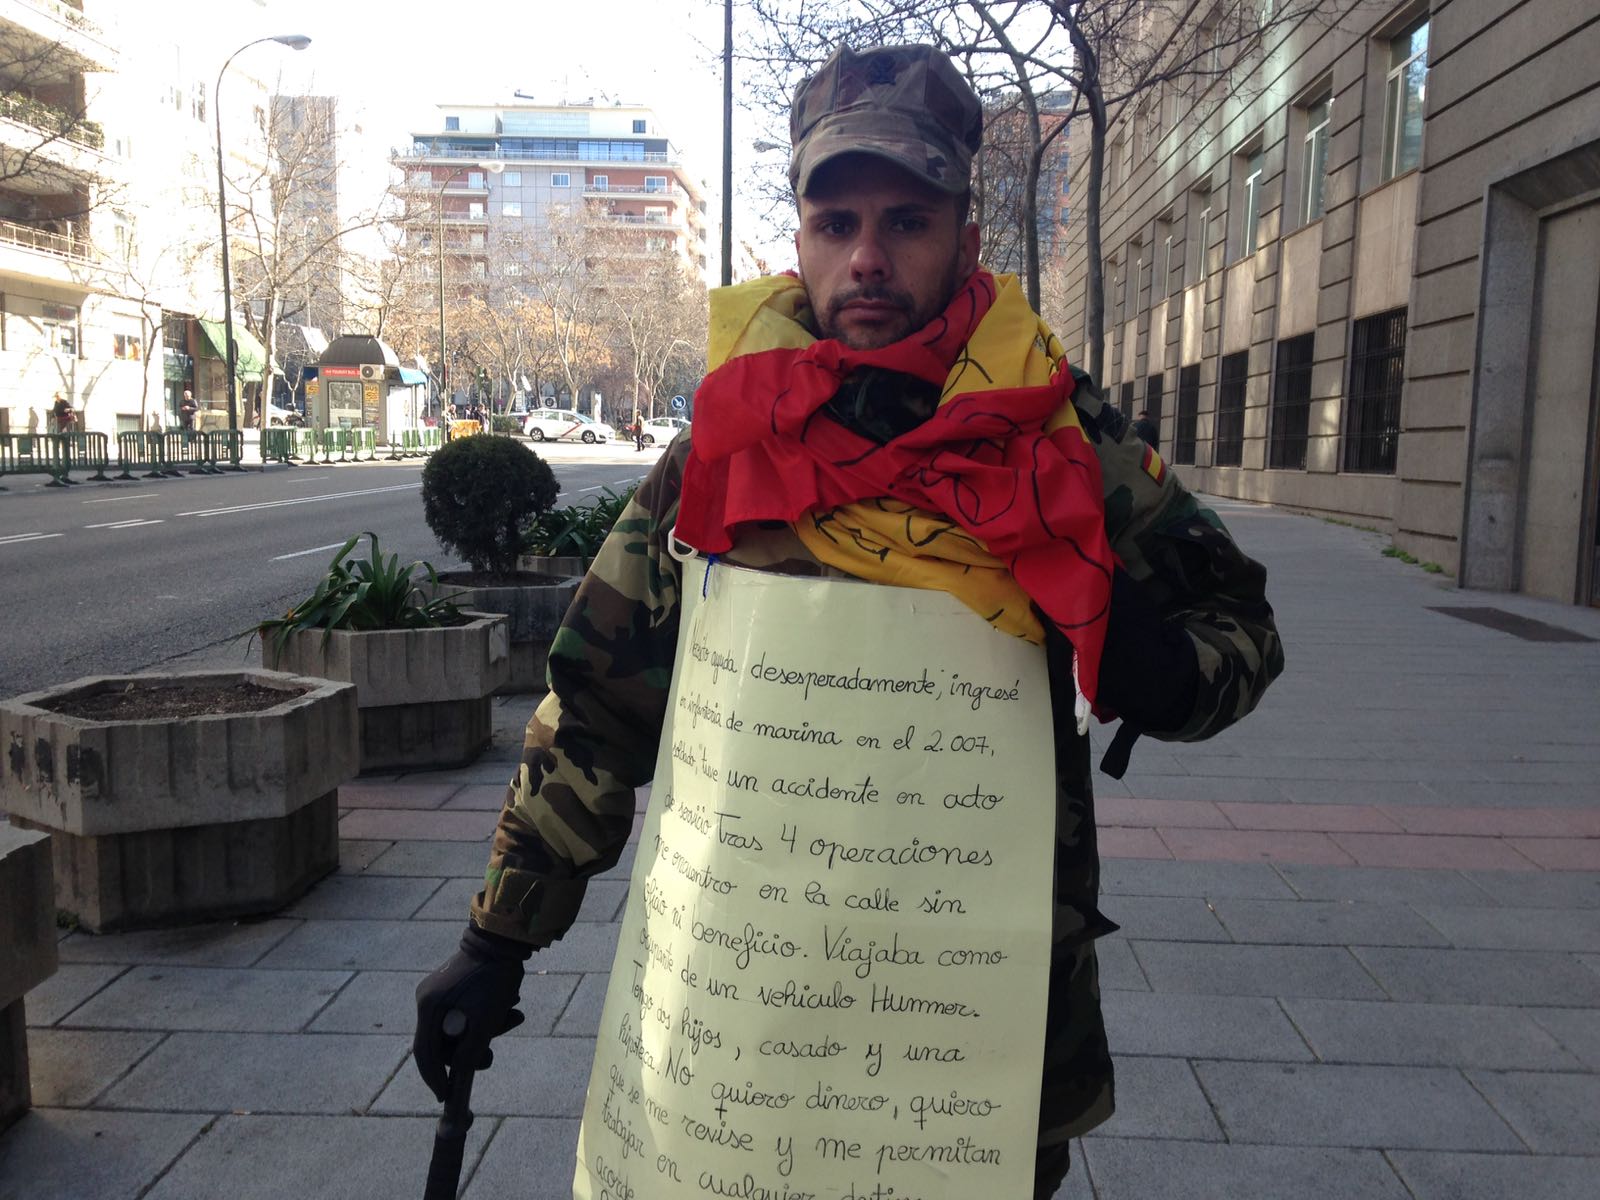 Necesito ayuda desesperadamente; ingresé
en infantería de marina en el 2.007,
soldado, "tuve un accidente en acto
de servicio Tras 4 operaciones
me encuentro en la calle sin
oficio ni beneficio. Viajaba como
ocupante de un vehiculo Hummer.
Tengo dos hijos, casado y una
hipoteca. No quiero dinero, quiero
que se me revise y me permitan
trabajar en cualquier destino
acorde